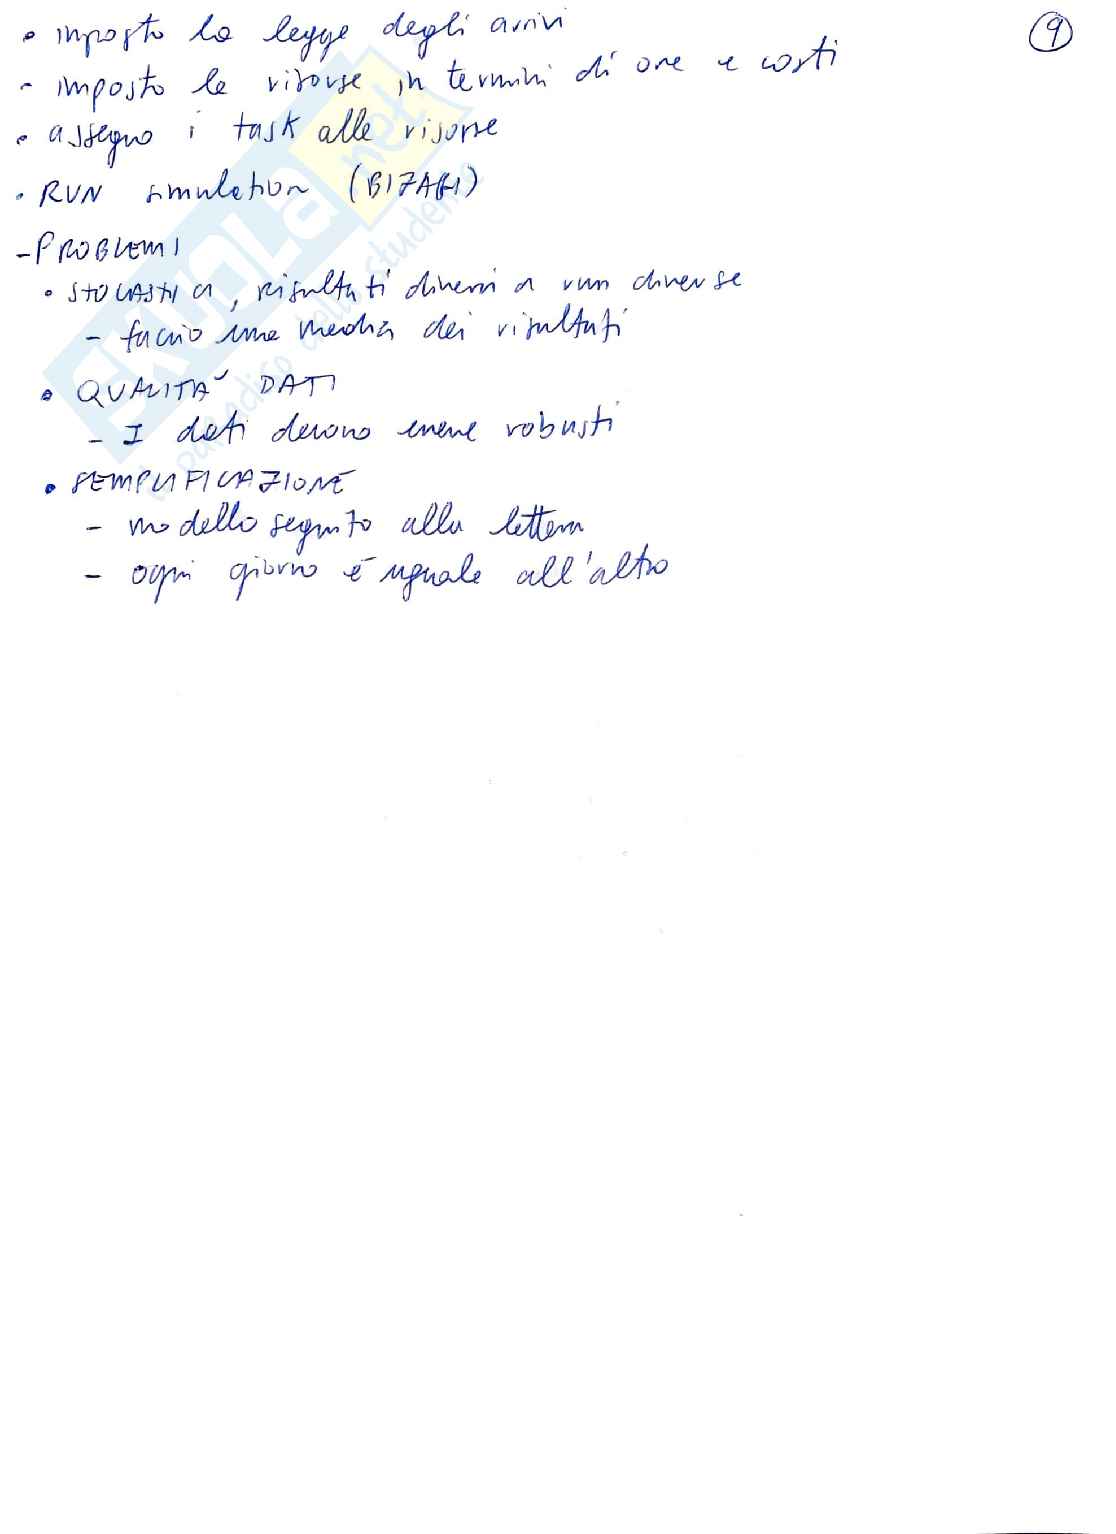 9
• imposto la legge degli arrivi
- imposto le risorse in termini di ore e costi
• assegno i task alle risorse
• RUN simulation (BIZAGI)
- PROBLEMI
• STOCASTICA, risultati diversi a run diverse
- faccio una media dei risultati
• QUALITA' DATI
- I dati devono essere robusti
• SEMPLIFICAZIONE
- modello seguito alla lettera
- ogni giorno è uguale all'altro
SKUOLA.net
il paradiso dello studente